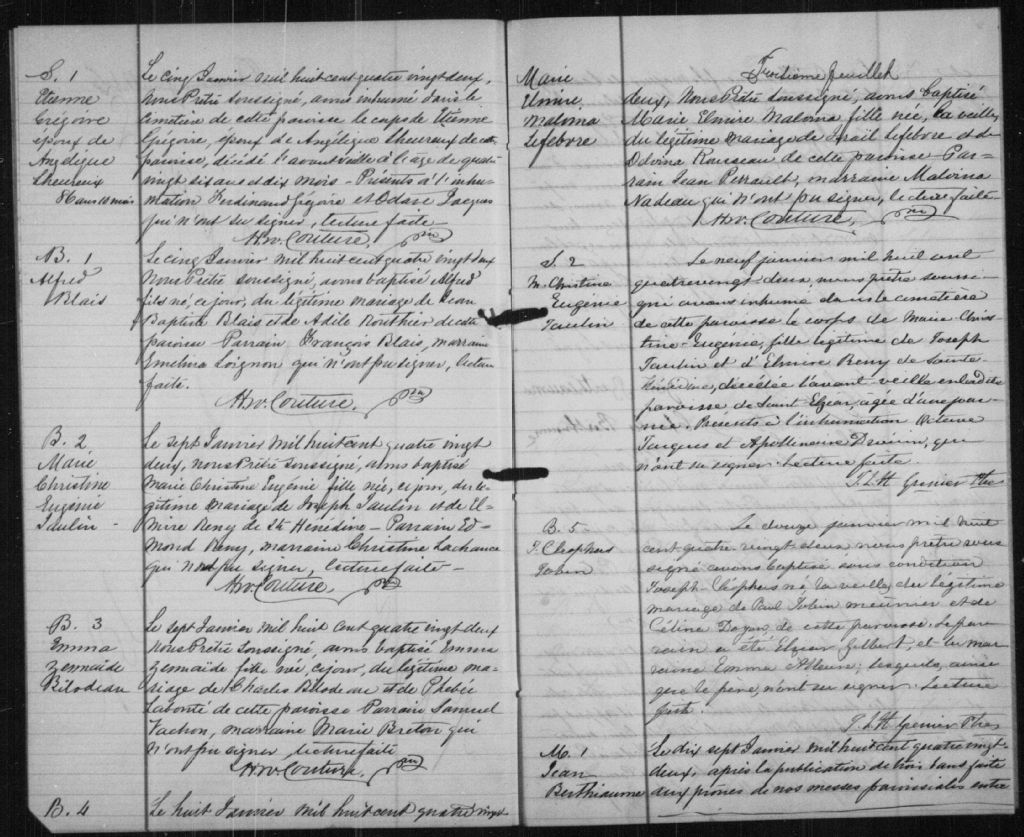 S. 1
Etienne
Grégoire
époux de
Angélique
Lheureux
86 ans 10 mois
Le cinq Janvier mil huit cent quatre vingt deux,
Nous Prêtre soussigné, avons inhumé dans le
Cimetière de cette paroisse le corps de Etienne
Grégoire, époux de Angélique Lheureux de cette
paroisse, décédé l'avant veille à l'age de quatre
vingt six ans et dix mois – Présents à l'inhu-
mation Ferdinand Grégoire et Odase Jacques
qui n'ont su signer, lecture faite –
Couture, Ptre
B. 1
Alfred
Blais
Le cinq Janvier mil huit cent quatre vingt deux
Nous Prêtre soussigné, avons baptisé Alfred
fils né, ce jour, du légitime mariage de Jean
Baptiste Blais et de Adile Routhier de cette
paroisse Parrain François Blais, marraine
Emelina Loignon qui n'ont pu signer, lecture
faite.
Couture, Ptre
B. 2
Marie
Christine
Eugénie
Paulin –
Le sept Janvier mil huit cent quatre vingt
deux, nous Prêtre soussigné, avons baptisé
Marie Christine Eugénie fille née, ce jour, du lé-
gitime mariage de Joseph Paulin et de El-
mire Remy de Ste Hénédine – Parrain Ed-
mond Remy, marraine Christine Lachance
qui n'ont pu signer, lecture faite –
Couture, Ptre
B. 3
Emma
Zemaïde
Bilodeau
Le sept Janvier mil huit cent quatre vingt deux
Nous Prêtre soussigné, avons baptisé Emma
Zemaïde fille née, ce jour, du légitime ma-
riage de Charles Bilodeau et de Phebée
Labonté de cette paroisse Parrain Samuel
Vachon, marraine Marie Breton qui
n'ont pu signer lecture faite
Couture, Ptre
B. 4
Le huit Janvier mil huit cent quatre vingt
Troisième feuillet
Marie
Elmire
Malvina
Lefebvre
deux, Nous Prêtre soussigné, avons baptisé
Marie Elmire Malvina fille née, la veille,
du légitime mariage de Lefebvre et de
Rousseau de cette paroisse – Par-
rain Jean Perrault, marraine Malvina
Nadeau qui n'ont pu signer, lecture faite –
Couture, Ptre
S. 2
M. Christine
Eugénie
Paulin
Le neuf janvier mil huit cent
quatrevingt deux, nous prêtre soussi-
gné avons inhumé dans le cimetière
de cette paroisse le corps de Marie-Chris-
tine-Eugénie, fille légitime de Joseph
Paulin et d'Elmire Remy de Sainte-
Hénédine, décédée l'avant veille en la dite
paroisse de Saint Elzéar, agée d'une jour-
née. Présents à l'inhumation Octave
Jacques et Apollinaire Drouin, qui
n'ont su signer. Lecture faite
T. L. H. Grenier Ptre
B. 5
J. Cléophas
Tobin
Le douze janvier mil huit
cent quatre-vingt-deux nous prêtre sous
signé avons baptisé sous condition
Joseph-Cléophas né la veille, du légitime
mariage de Paul Tobin meunier et de
Céline Doyon, de cette paroisse. Le par-
rain a été Elzear Gilbert, et la mar-
raine Emma lesquels, ainsi
que le père, n'ont su signer. Lecture
faite.
T. L. H. Grenier Ptre
M. 1
Jean
Berthiaume
Le dix sept Janvier mil huit cent quatre vingt-
deux, après la publication de trois bans faite
aux prônes de nos messes paroissiales entre